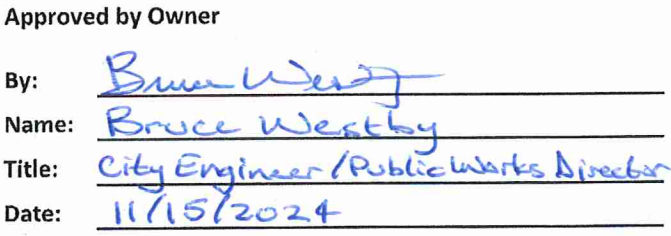 Approved by Owner
By: Bruce Westby
Name: Bruce Westby
Title: City Engineer/Public Works Director
Date: 11/15/2024